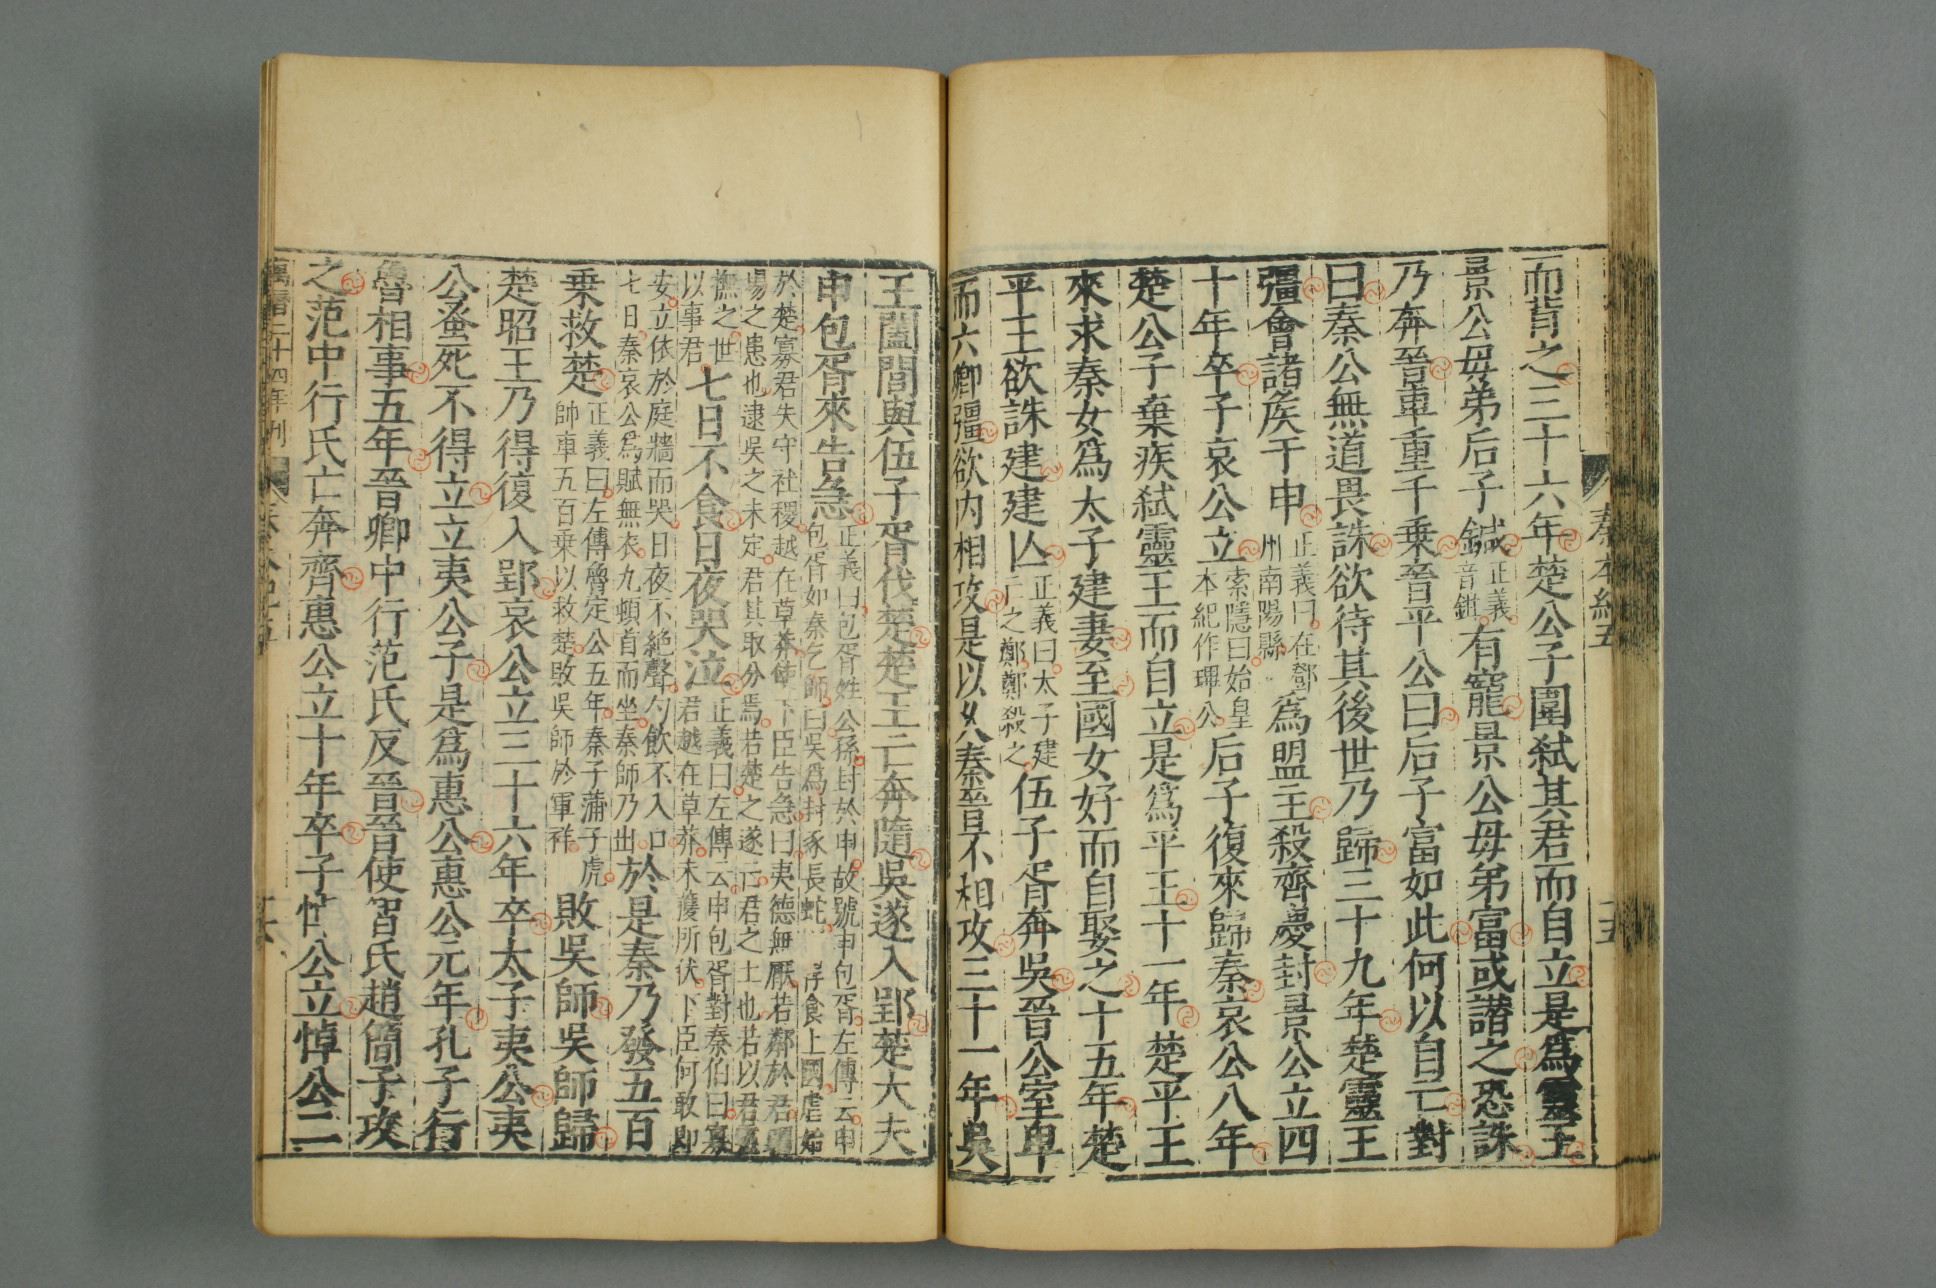 秦本紀五
十五
而背之三十六年楚公子圍弑其君而自立是爲靈王
景公母弟后子鍼正義音鉗有寵景公母弟富或譖之恐誅
乃奔晉車重千乘晉平公曰后子富如此何以自亡對
曰秦公無道畏誅欲待其後世乃歸三十九年楚靈王
彊會諸矦于申正義曰在鄧州南陽縣爲盟主殺齊慶封景公立四
十年卒子哀公立索隱曰始皇本紀作㻫公后子復來歸秦哀公八年
楚公子棄疾弑靈王而自立是爲平王十一年楚平王
來求秦女爲太子建妻至國女好而自娶之十五年楚
平王欲誅建建亾正義曰太子建亡之鄭鄭殺之伍子胥奔吳晉公室卑
而六卿彊欲内相攻是以久秦晉不相攻三十一年吳
王闔閭與伍子胥伐楚楚王亡奔隨吳遂入郢楚大夫
申包胥來告急正義曰包胥姓公孫封於申故號申包胥左傳云申
包胥如秦乞師曰吳爲封豕長蛇荐食上國虐始
於楚寡君失守社稷越在草莽使下臣告急曰夷德無厭若鄰於君疆
場之患也逮吳之未定君其取分焉若楚之遂亡君之土也若以君靈
撫之世以事君七日不食日夜哭泣正義曰左傳云申包胥對秦伯曰寡
君越在草莽未獲所伏下臣何敢即
安立依於庭牆而哭日夜不絕聲勺飲不入口
七日秦哀公爲賦無衣九頓首而坐秦師乃出於是秦乃發五百
乗救楚正義曰左傳魯定公五年秦子蒲子虎帥車五百乗以救楚敗吳師於軍祥敗吳師吳師歸
楚昭王乃得復入郢哀公立三十六年卒太子夷公夷
公蚤死不得立立夷公子是爲惠公惠公元年孔子行
魯相事五年晉卿中行范氏反晉晉使智氏趙簡子攻
之范中行氏亡奔齊惠公立十年卒子悼公立悼公二
萬曆二十四年刊